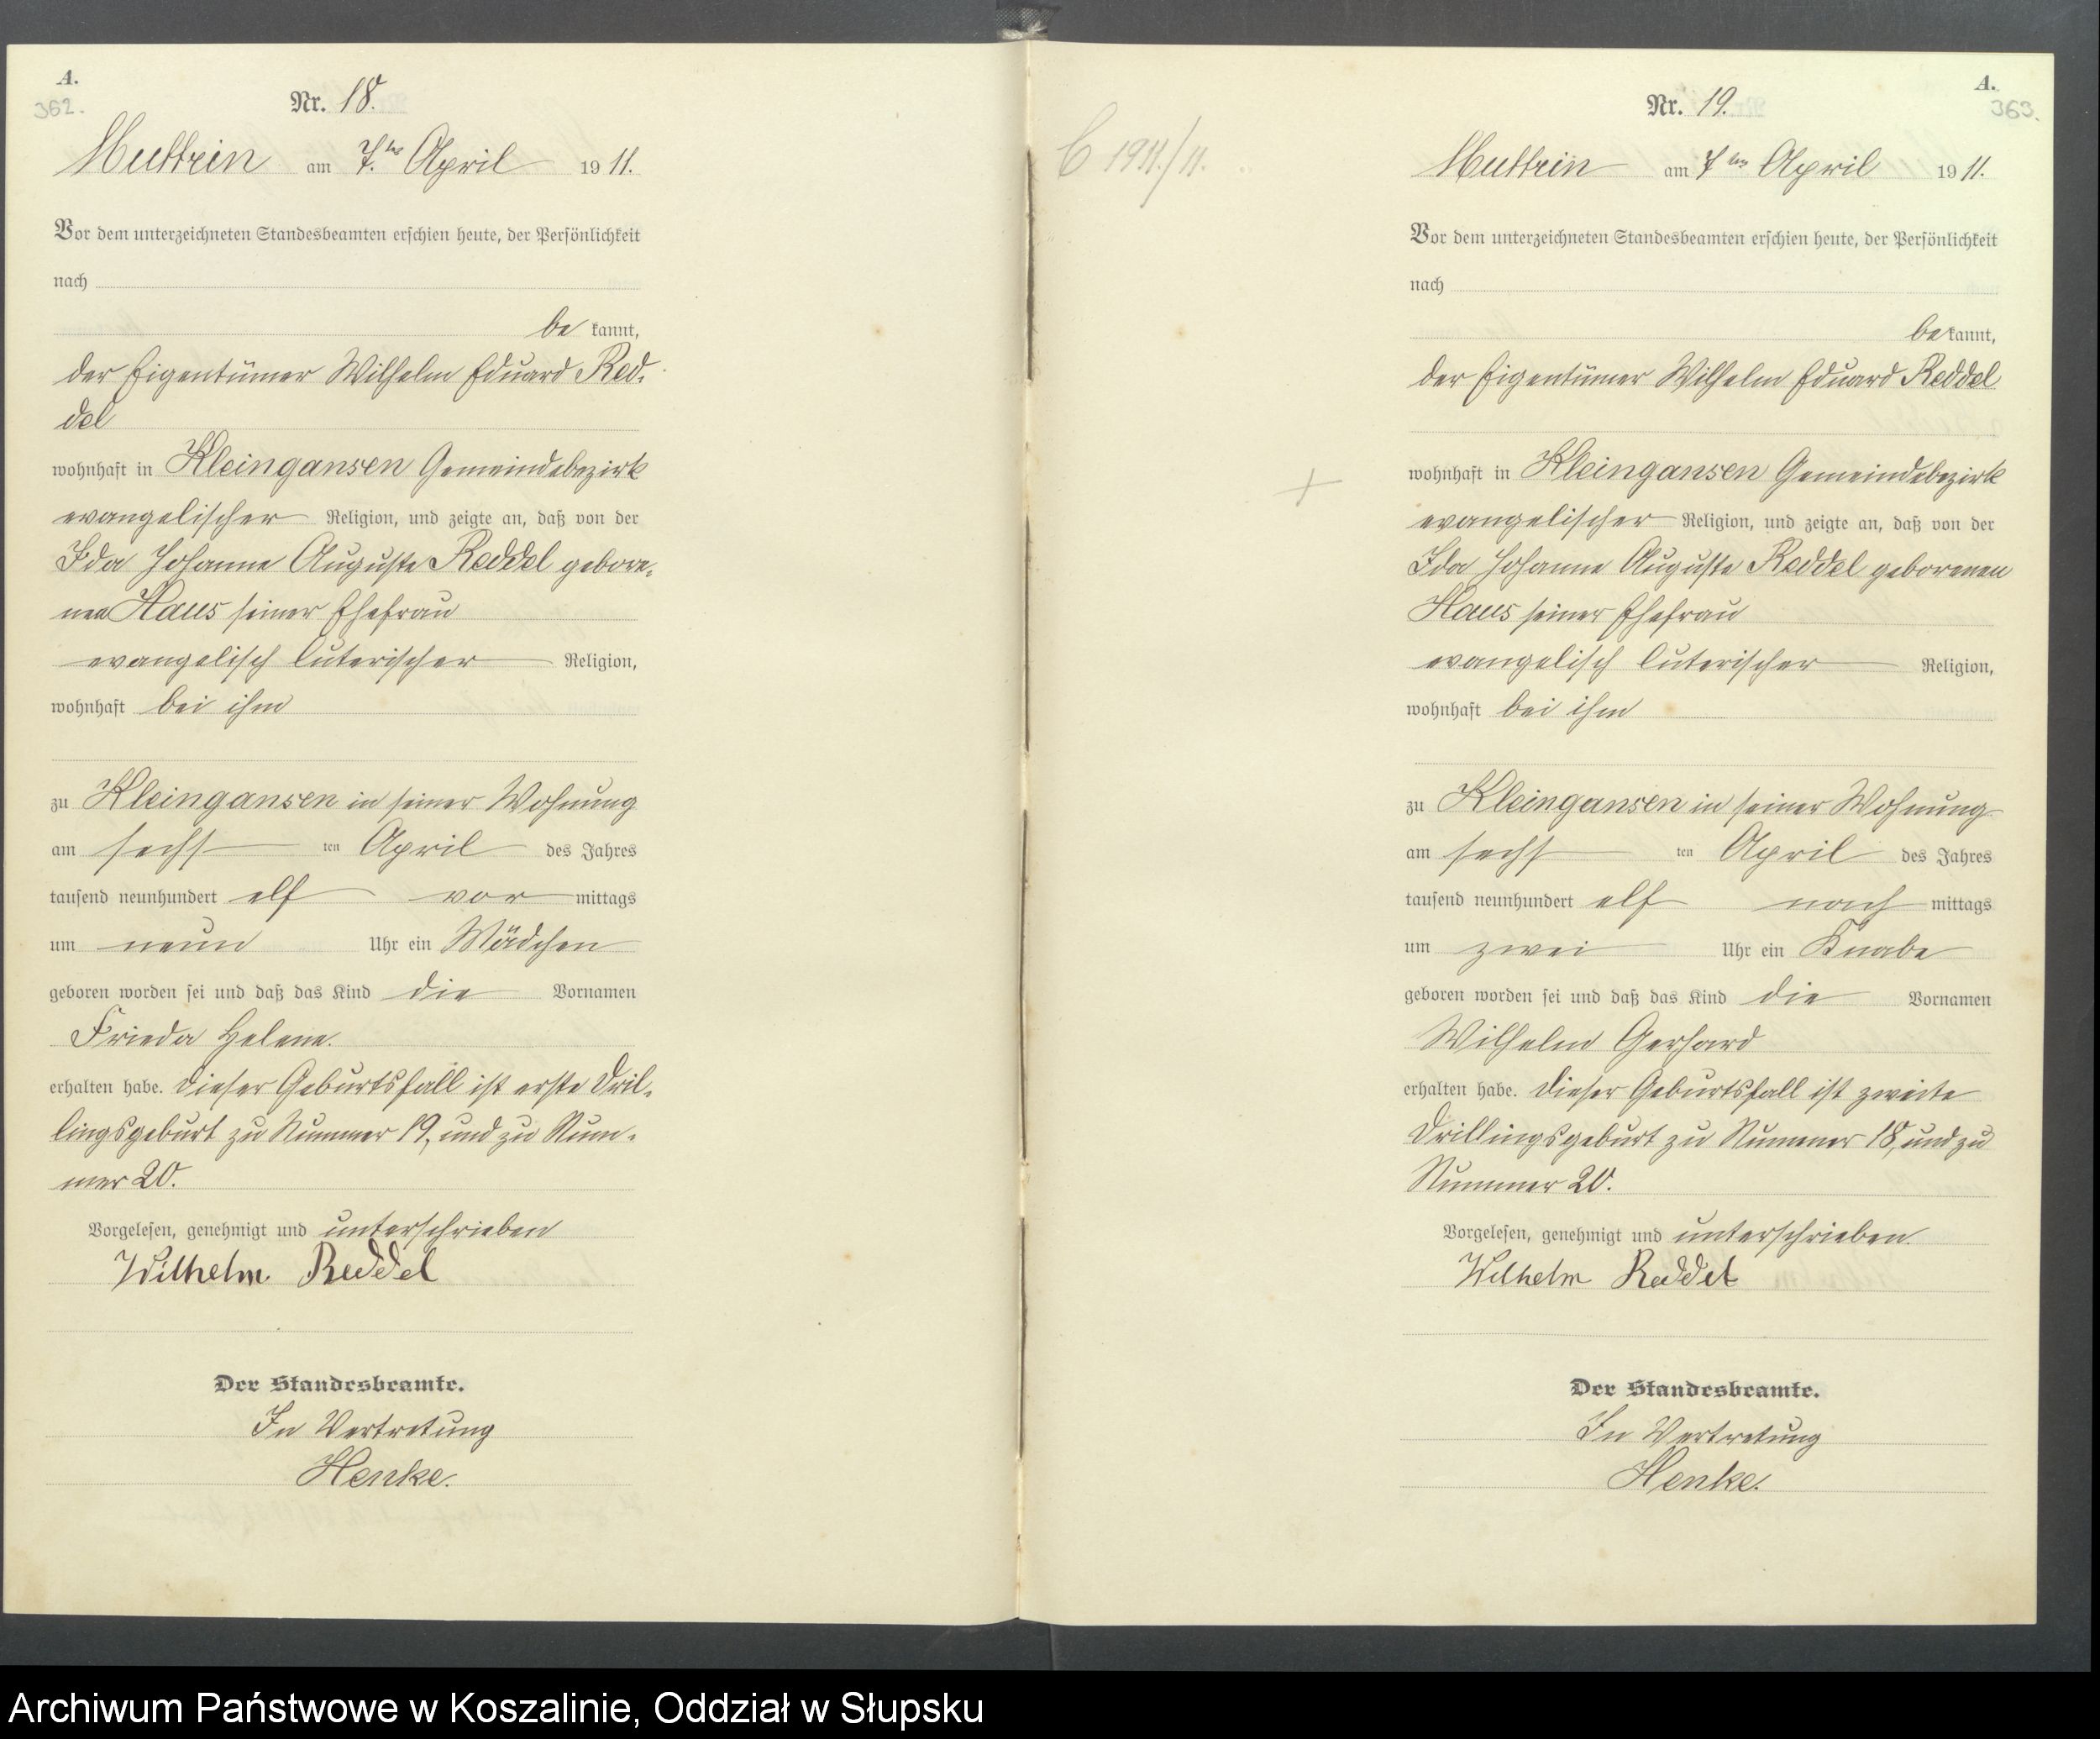 A.
362.
Nr. 18.
Muttrin am 7.ten April 1911.
Vor dem unterzeichneten Standesbeamten erschien heute, der Persönlichkeit
nach
be kannt,
der Eigentümer Wilhelm Eduard Red-
del
wohnhaft in Kleingansen Gemeindebezirk
evangelischer Religion, und zeigte an, daß von der
Ida Johanne Auguste Reddel gebore-
nen Haus seiner Ehefrau
evangelisch luterischer Religion,
wohnhaft bei ihm
zu Kleingansen in seiner Wohnung
am sechs ten April des Jahres
tausend neunhundert elf vor mittags
um neun Uhr ein Mädchen
geboren worden sei und daß das Kind die Vornamen
Frieda Helene.
erhalten habe. Dieser Geburtsfall ist erste Dril-
lingsgeburt zu Nummer 19, und zu Num-
mer 20.
Vorgelesen, genehmigt und unterschrieben
Wilhelm Reddel
Der Standesbeamte.
In Vertretung
Henke.
C 1911./11.
A.
363.
Nr. 19.
Muttrin am 7ten April 1911.
Vor dem unterzeichneten Standesbeamten erschien heute, der Persönlichkeit
nach
be kannt,
der Eigentümer Wilhelm Eduard Reddel
wohnhaft in Kleingansen Gemeindebezirk
evangelischer Religion, und zeigte an, daß von der
Ida Johanne Auguste Reddel geborenen
Haus seiner Ehefrau
evangelisch luterischer Religion,
wohnhaft bei ihm
zu Kleingansen in seiner Wohnung
am sechs ten April des Jahres
tausend neunhundert elf nach mittags
um zwei Uhr ein Knabe
geboren worden sei und daß das Kind die Vornamen
Wilhelm Gerhard
erhalten habe. Dieser Geburtsfall ist zweite
Drillingsgeburt zu Nummer 18, und zu
Nummer 20.
Vorgelesen, genehmigt und unterschrieben.
Wilhelm Reddel
Der Standesbeamte.
In Vertretung
Henke.
Archiwum Państwowe w Koszalinie, Oddział w Słupsku